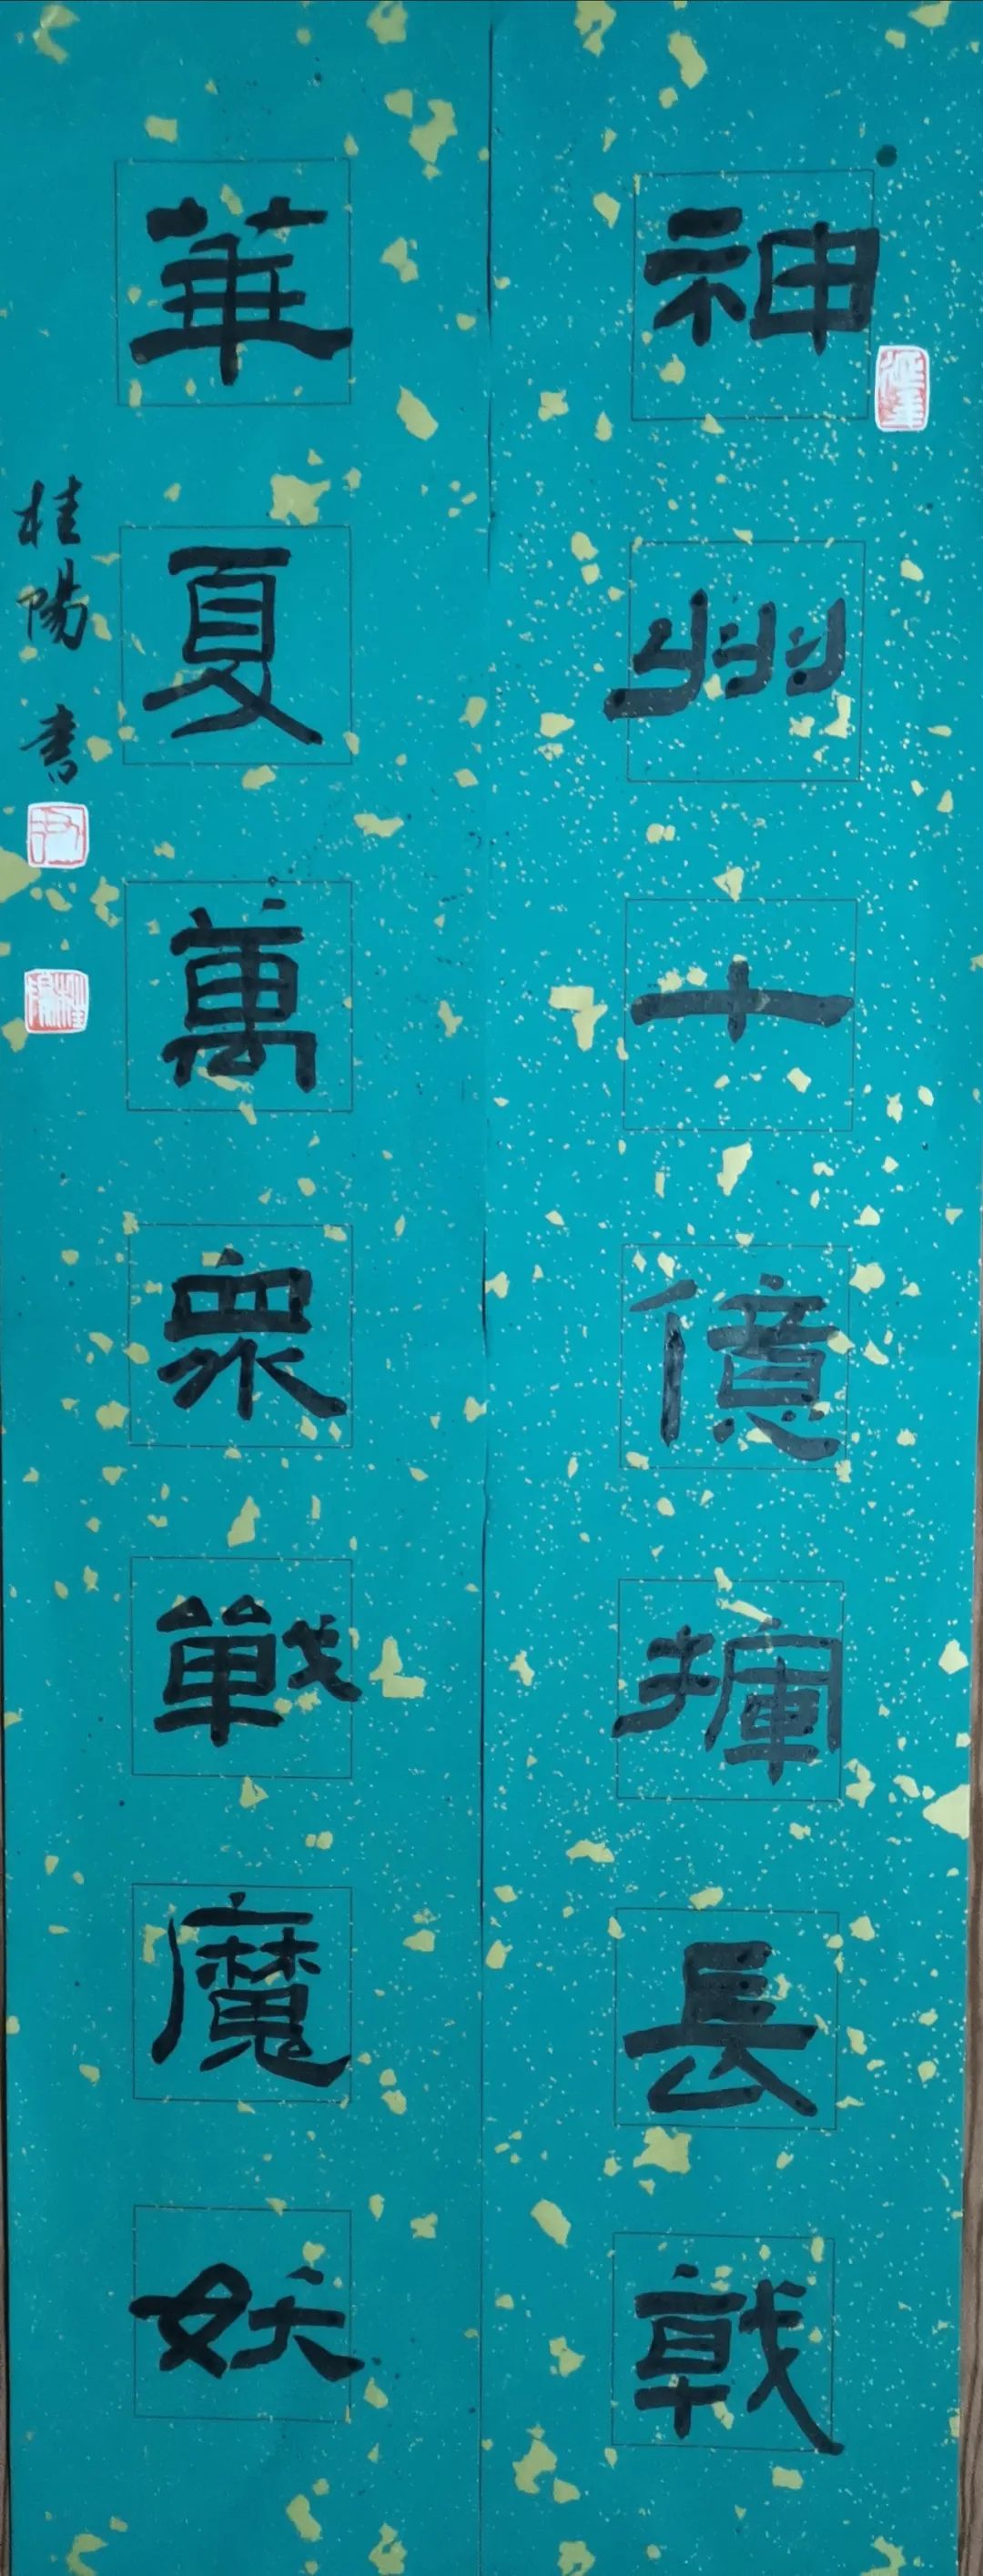 神州十億揮長戟
華夏萬眾戰魔妖
桂陽書